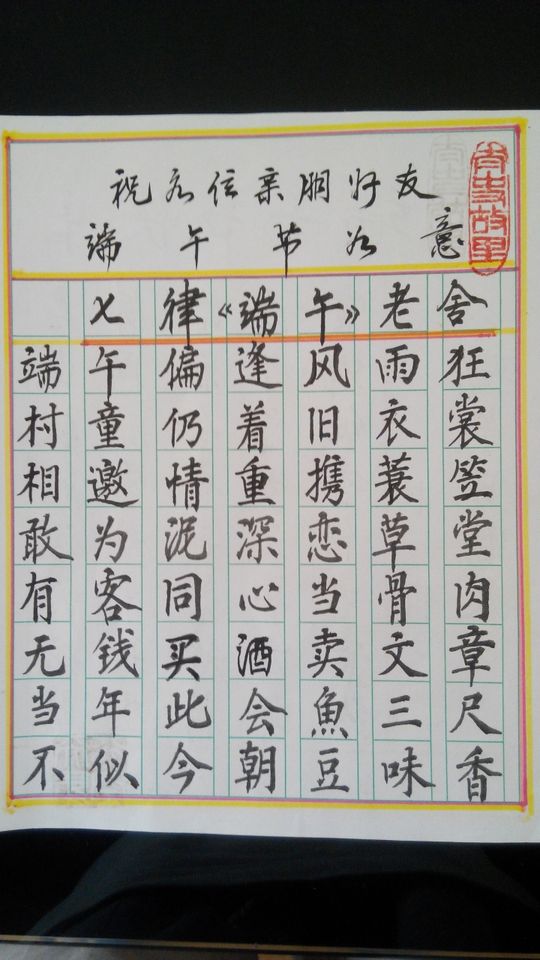 祝各位亲朋好友
端午节如意
七律《端午》老舍
端午偏逢风雨狂
村童仍着旧衣裳
相邀情重携蓑笠
敢为泥深恋草堂
有客同心当骨肉
无钱买酒卖文章
当年此会魚三尺
不似今朝豆味香
故里